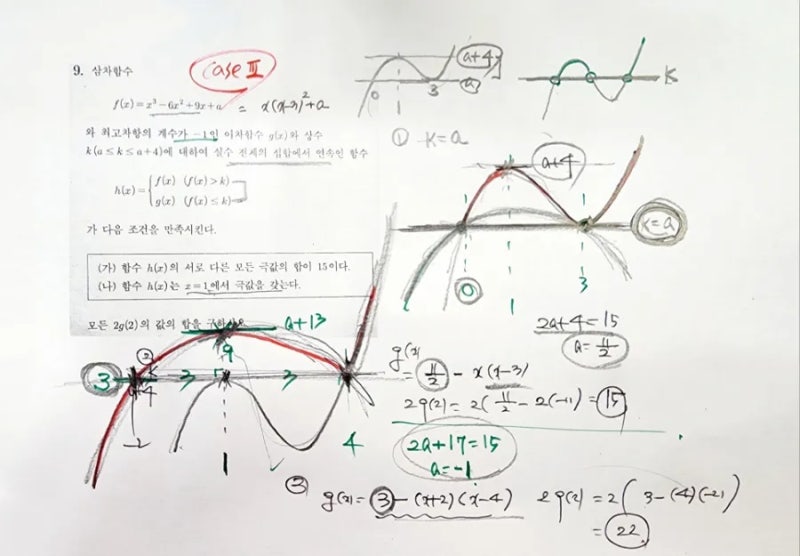 9. 삼차함수
case Ⅲ
f(x)=x³-6x²+9x+a = x(x-3)²+a
와 최고차항의 계수가 -1인 이차함수 g(x)와 상수
k(a≤k≤a+4)에 대하여 실수 전체의 집합에서 연속인 함수
h(x)={ f(x) (f(x)>k)
g(x) (f(x)≤k)
가 다음 조건을 만족시킨다.
(가) 함수 h(x)의 서로 다른 모든 극값의 합이 15이다.
(나) 함수 h(x)는 x=1에서 극값을 갖는다.
모든 2g(2)의 값의 합을 구하시오
a+4
a
0
3
K
① K=a
a+4
K=a
0
1
3
2a+4=15
a=11/2
g(x)
= 11/2 - x(x-3)
2g(2)=2(11/2-2(-1))=15
a+13
②
9
3
3
3
a+4
-2
1
4
2a+17=15
a=-1
③ g(x)=3-(x+2)(x-4)
2g(2)=2(3-(4)(-2))
=22